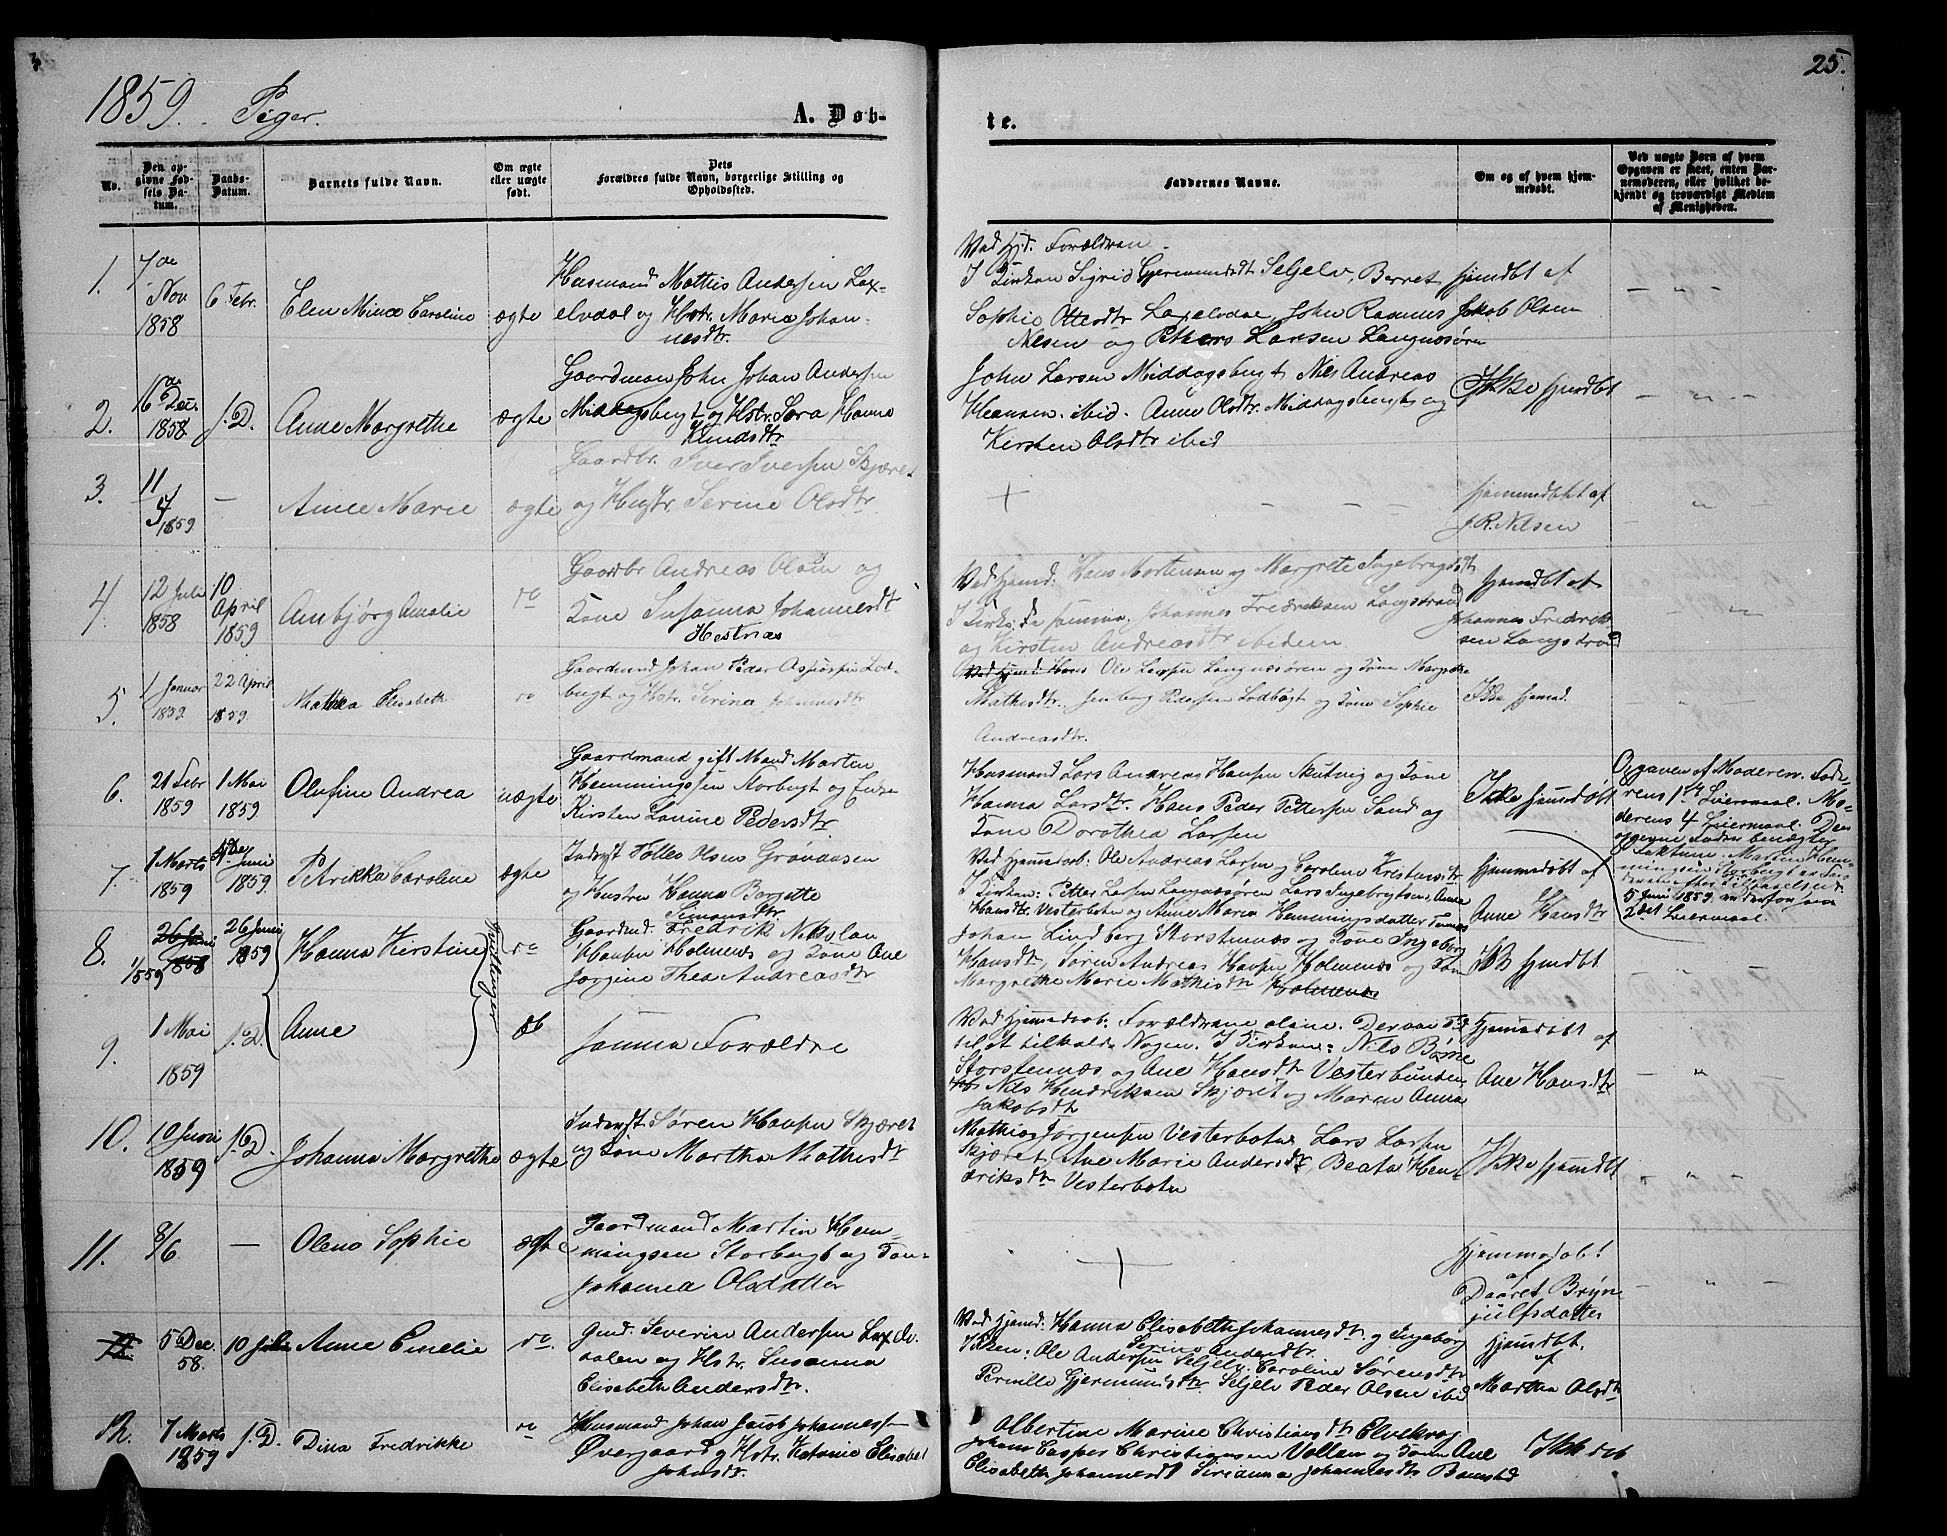 1859. Piger.
A. Døb-
te.
25.
No.
Den op-
givne Fød-
sels Da-
tum.
Daabs-
Datum.
Barnets fulde Navn.
Om ægte
eller uægte
født.
Dets
Forældres fulde Navn, borgerlige Stilling og
Opholdssted.
Faddernes Navne.
Om og af hvem hjem-
medøbt.
Ved uægte Børn af hvem
Opgaven er skeet, enten Bar-
nemoderen, eller hvilket be-
kjendt og troværdigt Medlem
af Menigheden.
1.
7de
Nov
1858
6 Febr.
Elen Mina Caroline
ægte
Husmand Mathis Andersen Lax-
elvdal og Hstr. Maria Johan-
nesdtr.
Ved Hjd. Forældren.
I Kirken Sigrid Gjermundsdt Seljelv, Berret
Sophie Ottesdtr Laxelvdal, John Rasmus
Nilsen og Pethers Larsen Langnæsøren
hjemdbt af
Jakob Olsen
2.
16de Dec.
1858
s. D.
Anne Margrethe
ægte
Gaardman John Johan Andersen
Middagsbergt og Hstr. Sara Hanna
Knudsdtr
John Larsen Middagsbergt Nils Andreas
Hansen ibid. Anne Olsdtr. Middagsbergt og
Kirsten Olsdtr ibid
Ikke hjemdbt
3.
11
1859
Anne Marie
ægte
Gaardbr. Iver Iversen Skjæret
og Hustr. Serine Olsdtr
hjemmedøbt af
J. R. Nilsen
4
12 Juli
1858
10
April
1859
Anbjørg Amalie
do
Gaardbr Andreas Olsen og
Kone Susanna Johannesdtr
Hestnæs
Ved Hjemd: Hans Mortensen og Margrete Ingebrigtsdtr
I Kirke: de samme, Johannes Fredriksen Langstrand
og Kirsten Andreasdtr ibidem
hjemdbt af
Johannes Fredrik-
sen Langstrand
5.
1 Januar
1859
22 April
1859
Mathea Elisabeth
do
Gaardmd Johan Peder Lod-
bugt og Hstr. Serina Johannesdtr
Ole Larsen Langnæsøren og Kone Margrethe
Mathisdtr. Jens Pedersen Lodbugt og Kone Sophie
Andreasdtr.
Ikke hjemd.
6.
21 Febr
1859
1 Mai
1859
Olufine Andrea
uægte
Gaardmand gift Mand Martin
Hemmingsen Storbugt og Enke
Kirsten Lanine Pedersdtr.
Husmand Lars Andreas Hansen Skutvig og Kone
Hanna Larsdtr. Hans Peder Pettersen Sand og
Kone Dorothea Larsen
Ikke hjemdøbt
Opgaven af Moderen. Fade-
rens 1ste Leiermaal. Mo-
derens 4 Leiermaal. Den
opgivne Fader benægter
Faktum. Martin Hem-
mingsen Storbugt
5 Juni 1859
2det Leiermaal.
7.
1 Marts
1859
Juni
1859
Petrikka Caroline
ægte
Indrst Tolles Olsen Grønaasen
og Hustru Hanna Bergitte
Simonsdtr.
Ved hjemmedaab: Ole Andreas Larsen og Caroline Kristensdtr
I Kirken: Petter Larsen Langnæsøren Lars Ingebrigtsen, Anna
Hansdtr. Vesterbotn og Anne Maria Hemmingsdatter
hjemmedøbt af
Anne Hansdtr
8.
26 Juni
1858
1/5 59
26 Juni
1859
Hanna Kirstine
Tvillinger
do
Gaardmd. Fredrik Nikolai
Hansen Holmenæs og Kone Ane
Jørgine Thea Andreasdtr
Johan Lindberg Storstennæs og Kone Ingeborg
Hansdtr, Søren Andreas Hansen Holmenæs og Kone
Margrethe Marie Mathisdtr Holmenæs
Ikk hjemdbt
9.
1 Mai
1859
s. D.
Anne
do
samme Forældre
Ved hjemmedaab: Forældrene alene. Der var Tid
til at tilkalde Nogen. I Kirken: Nils Børre
Storstennæs og Ane Hansdtr Vesterbunden
Nils Hendriksen Skjæret og Maren Anna
Jakobsdtr
hjemmedøbt
af
Ane Hansdtr
10.
10 Juni
1859
s. D.
Johanna Margrethe
ægte
Indrst. Søren Hansen Skjæret
og Kone Martha Mathisdtr
Mathias Jørgensen Vesterbotn, Lars Larsen
Skjæret, Ane Marie Andersdtr, Beata Hen-
driksdtr Vesterbotn
Ikke hjemdbt
11.
8/6
Olena Sophie
ægte
Gaardmand Martin Hem-
mingsen Storbugt og Kone
Johanna Olsdatter
hjemmedøbt
af
Daaret Bryn-
julfsdatter
12
5 Dec
58.
10 Juli
Anne Emelie
do.
Gmd. Severin Andersen Laxelv-
dalen og Hstr. Susanna
Elisabeth Andersdtr.
Ved hjemd: Hanna Elisabeth Johannesdtr. og Ingeborg
Andersdtr.
I Kirken: Ole Andersen Seljelv. Caroline Sørensdtr
Pernille Gjermundsdtr Seljelv Peder Olsen ibid
hjemdbt.
af
Martha Olsdtr
12.
7 Marts
1859
s. D.
Dina Fredrikke
do
Husmand Johan Jacob Johannessen
Øvergaard og Hstr. Antonie Elisabet
Johnsdtr.
Albertine Marine Christiansdtr Elvekrog
Johan Casper Christiansen Vollan og Kone Ane
Elisabeth Johannesdtr Sirianna Johannesdtr
Ikk døb